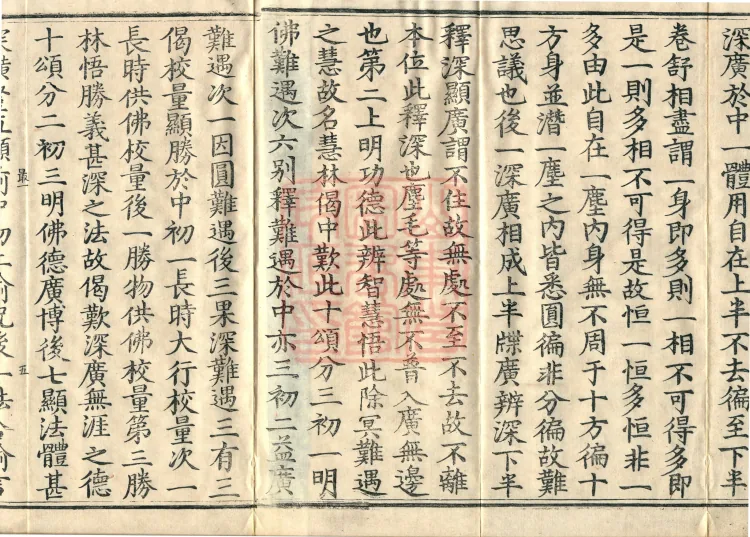 深廣於中一體用自在上半不去徧至下半
卷舒相盡謂一身即多則一相不可得多即
是一則多相不可得是故恒一恒多恒非一
多由此自在一塵内身無不周于十方徧十
方身並潛一塵之内皆悉圓徧非分徧故難
思議也後一深廣相成上半牒廣辨深下半
釋深顯廣謂不住故無處不至不去故不離
本位此釋深也塵毛等處無不曾入廣無邊
也第二上明功德此辨智慧悟此除冥難遇
之慧故名慧林偈中歎此十頌分三初一明
佛難遇次六别釋難遇於中亦三初二益廣
難遇次一因圓難遇後三果深難遇三有三
偈校量顯勝於中初一長時大行校量次一
長時供佛校量後一勝物供佛校量第三勝
林悟勝義甚深之法故偈歎深廣無涯之德
十頌分二初三明佛德廣博後七顯法體甚
五